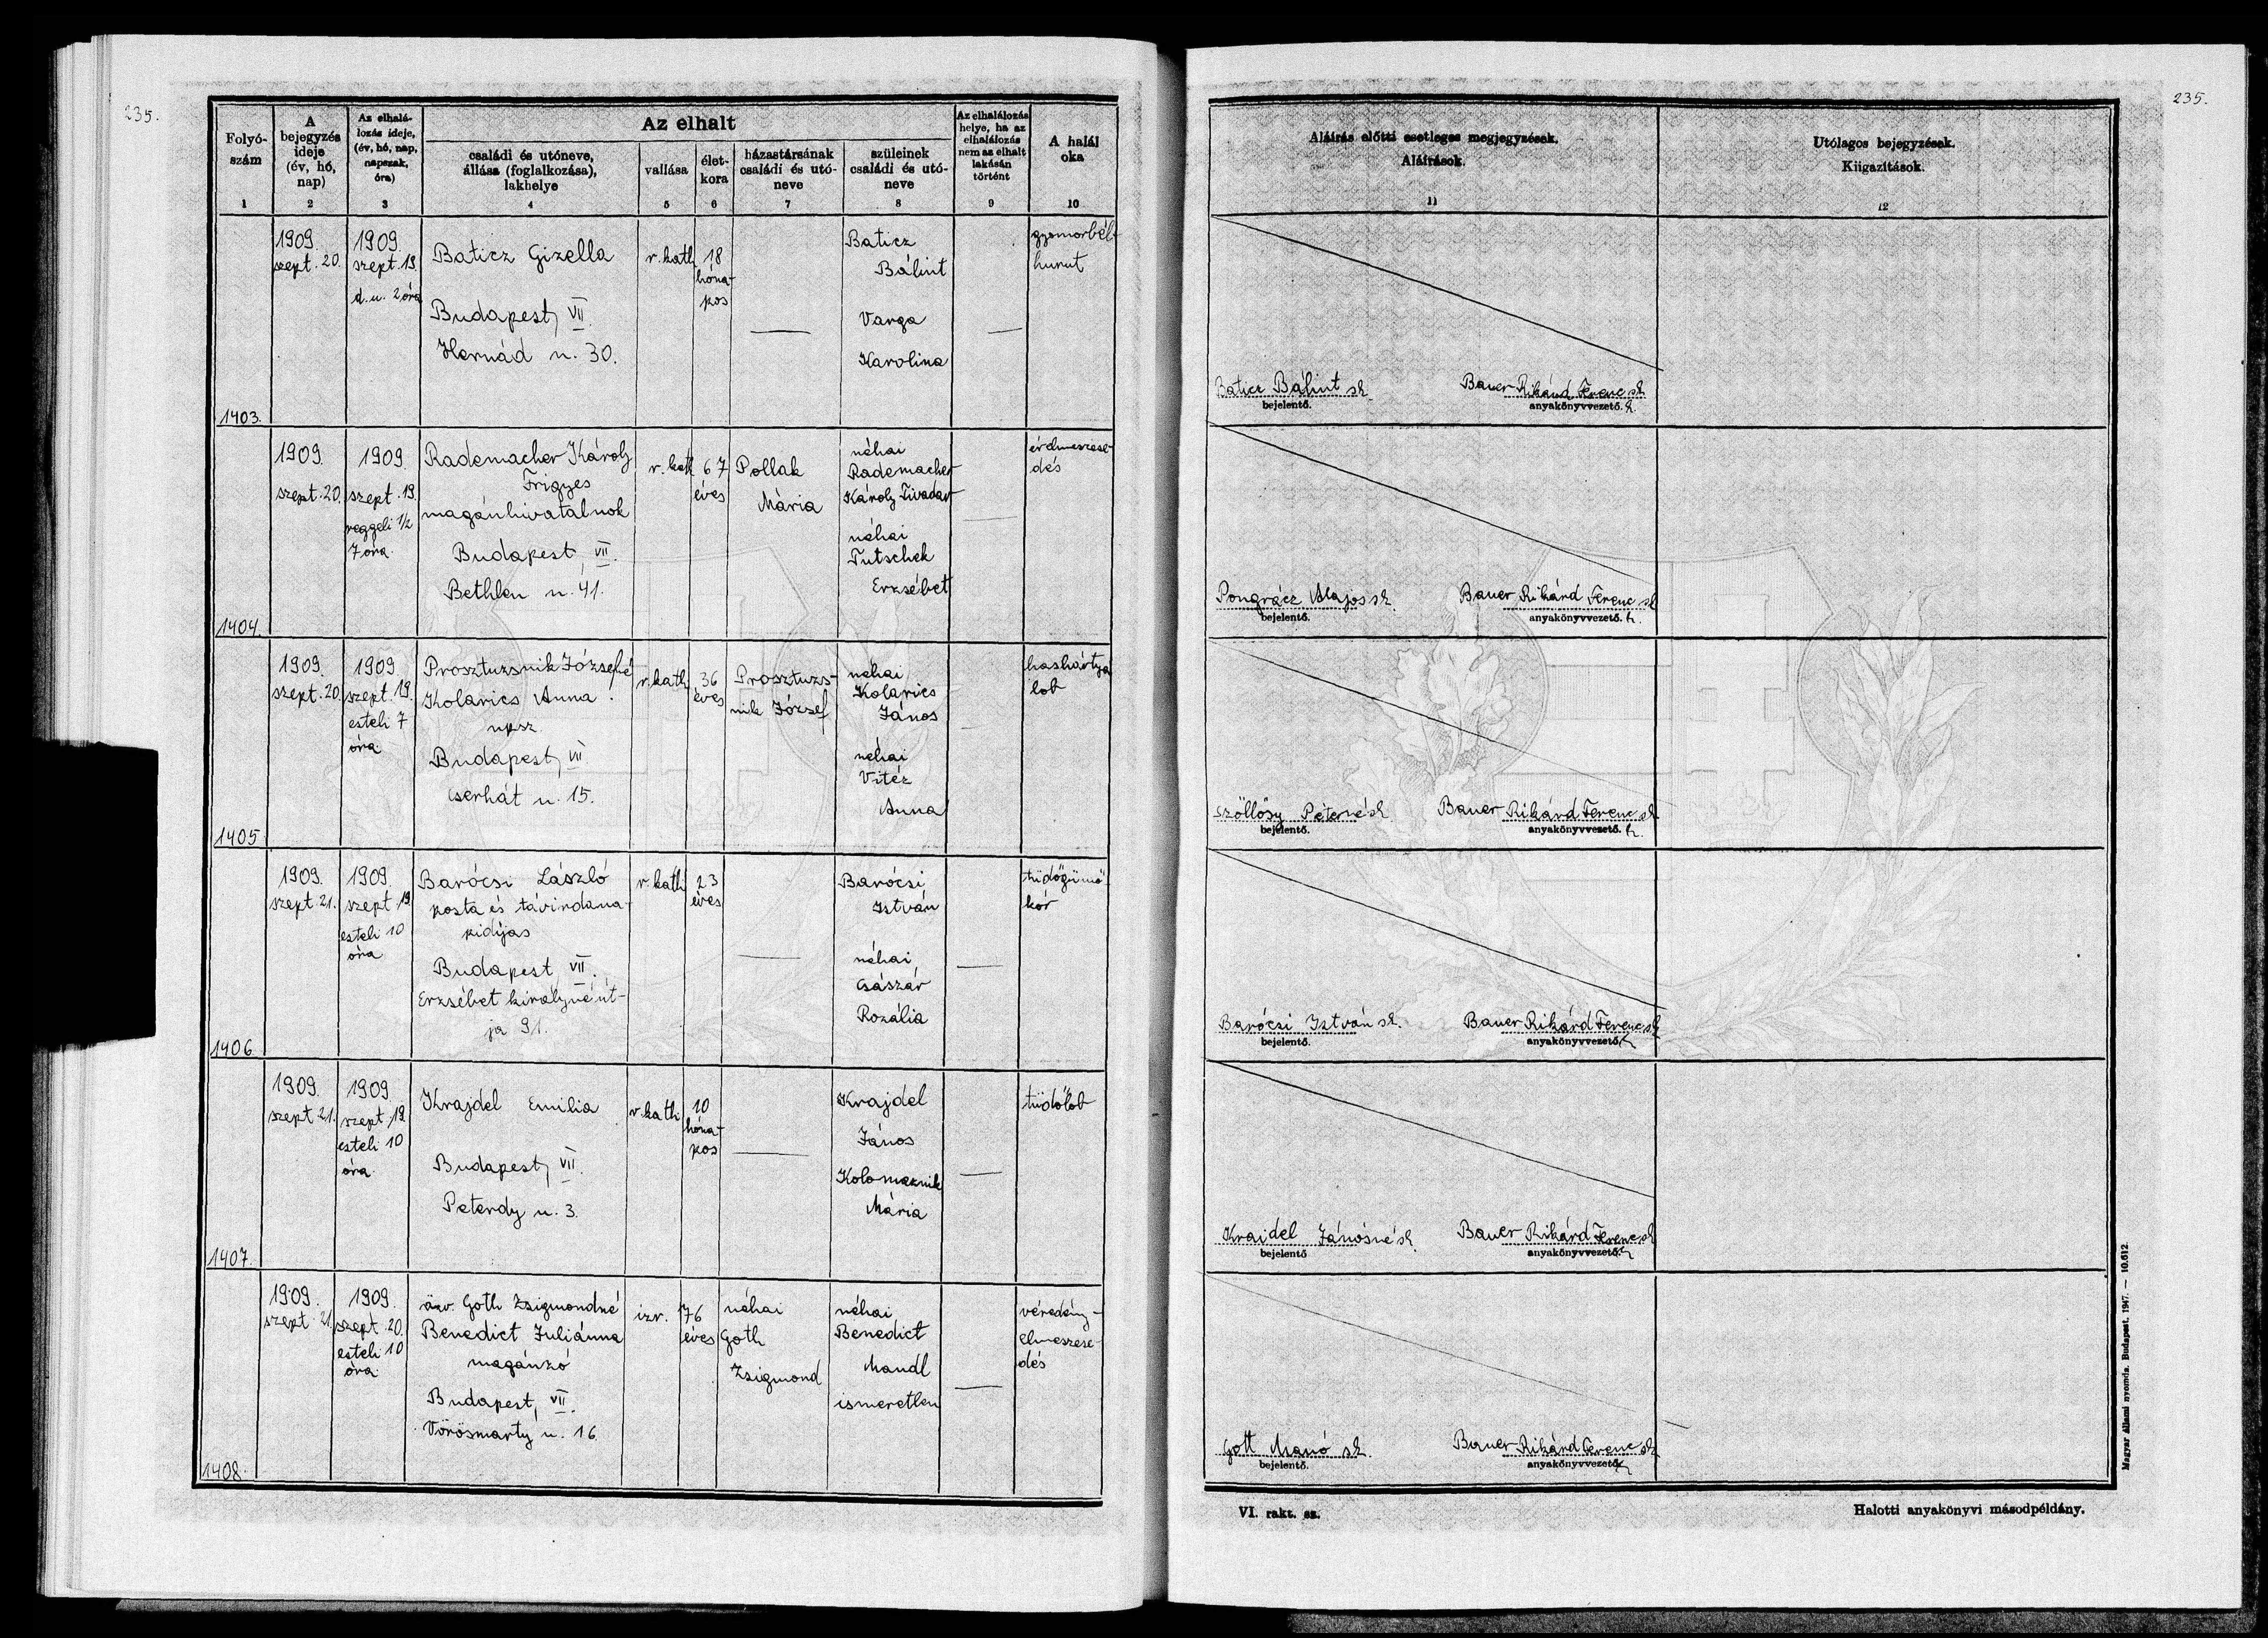 235.
Folyó-
szám
1
A
bejegyzés
ideje
(év, hó,
nap)
2
Az elhalá-
lozás ideje,
(év, hó, nap,
napszak,
óra)
3
Az elhalt
családi és utóneve,
állása (foglalkozása),
lakhelye
4
vallása
5
élet-
kora
6
házastársának
családi és utó-
neve
7
szüleinek
családi és utó-
neve
8
Az elhalálozás
helye, ha az
elhalálozás
nem az elhalt
lakásán
történt
9
A halál
oka
10
1403.
1909
szept. 20.
1909
szept. 19.
d. u. 2 óra
Baticz Gizella
Budapest, VII.
Hernád u. 30.
r. kath
18
hóna-
pos
Baticz
Bálint
Varga
Karolina
gyomorbél-
hurut
1404.
1909.
szept. 20.
1909
szept. 19.
reggeli 1/2
7 óra.
Rademacher Károly
Frigyes
magánhivatalnok
Budapest, VII.
Bethlen u. 41.
r. kath
67
éves
Pollak
Mária
néhai
Rademacher
Károly Tivadar
néhai
Tutschek
Erzsébet
érelmeszese-
dés
1405.
1909.
szept. 20.
1909
szept. 19.
esteli 7
óra.
Prosztuzsnik Józsefné
Kolarics Anna
npsz
Budapest, VII.
Cserhát u. 15.
r. kath
36
éves
Prosztuzs-
nik József
néhai
Kolarics
János
néhai
Vitéz
Anna
hashártya
lob
1406.
1909.
szept. 21.
1909.
szept. 19
esteli 10
óra
Barócsi László
posta és távirdana-
pidíjas
Budapest, VII.
Erzsébet királyné út-
ja 91.
r. kath
23
éves
Barócsi
István
néhai
Császár
Rozália
tüdőgümő-
kór
1407.
1909.
szept 21.
1909
szept. 19.
esteli 10
óra.
Krajdel Emilia
Budapest, VII.
Peterdy u. 3.
r. kath
10
hóna-
pos
Krajdel
János
Kolomaznik
Mária
tüdőlob
1408.
1909.
szept. 21.
1909.
szept. 20.
esteli 10
óra
özv. Goth Zsigmondné
Benedict Juliánna
magánzó
Budapest, VII.
Vörösmarty u. 16.
izr.
76
éves
néhai
Goth
Zsigmond
néhai
Benedict
Mandl
ismeretlen
véredény-
elmeszese-
dés
235.
Aláírás előtti esetleges megjegyzések.
Aláírások.
11
Utólagos bejegyzések.
Kiigazítások.
12
Baticz Bálint sk. Bauer Rikárd Ferenc sk
bejelentő. anyakönyvvezető. h.
Pongrácz Alajos sk. Bauer Rikárd Ferenc sk
bejelentő. anyakönyvvezető. h.
Szöllősy Péterné sk Bauer Rikárd Ferenc sk
bejelentő. anyakönyvvezető. h.
Barócsi István sk. Bauer Rikárd Ferenc sk
bejelentő. anyakönyvvezető. h
Kraidel Jánosné sk. Bauer Rikárd Ferenc sk
bejelentő anyakönyvvezető. h
Gott Manó sk. Bauer Rikárd Ferenc sk
bejelentő. anyakönyvvezető. h
VI. rakt. sz.
Halotti anyakönyvi másodpéldány.
Magyar állami nyomda. Budapest. 1947. — 10.612